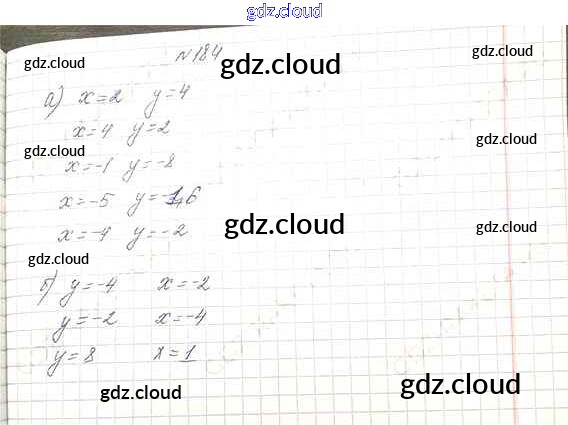 gdz.cloud
№184
gdz.cloud
gdz.cloud
gdz.cloud
а) x=2 y=4
x=4 y=2
gdz.cloud
gdz.cloud
x=-1 y=-8
x=-5 y=-1,6
gdz.cloud
gdz.cloud
x=-4 y=-2
gdz.cloud
б) y=-4 x=-2
y=-2 x=-4
y=8 x=1
gdz.cloud
gdz.cloud